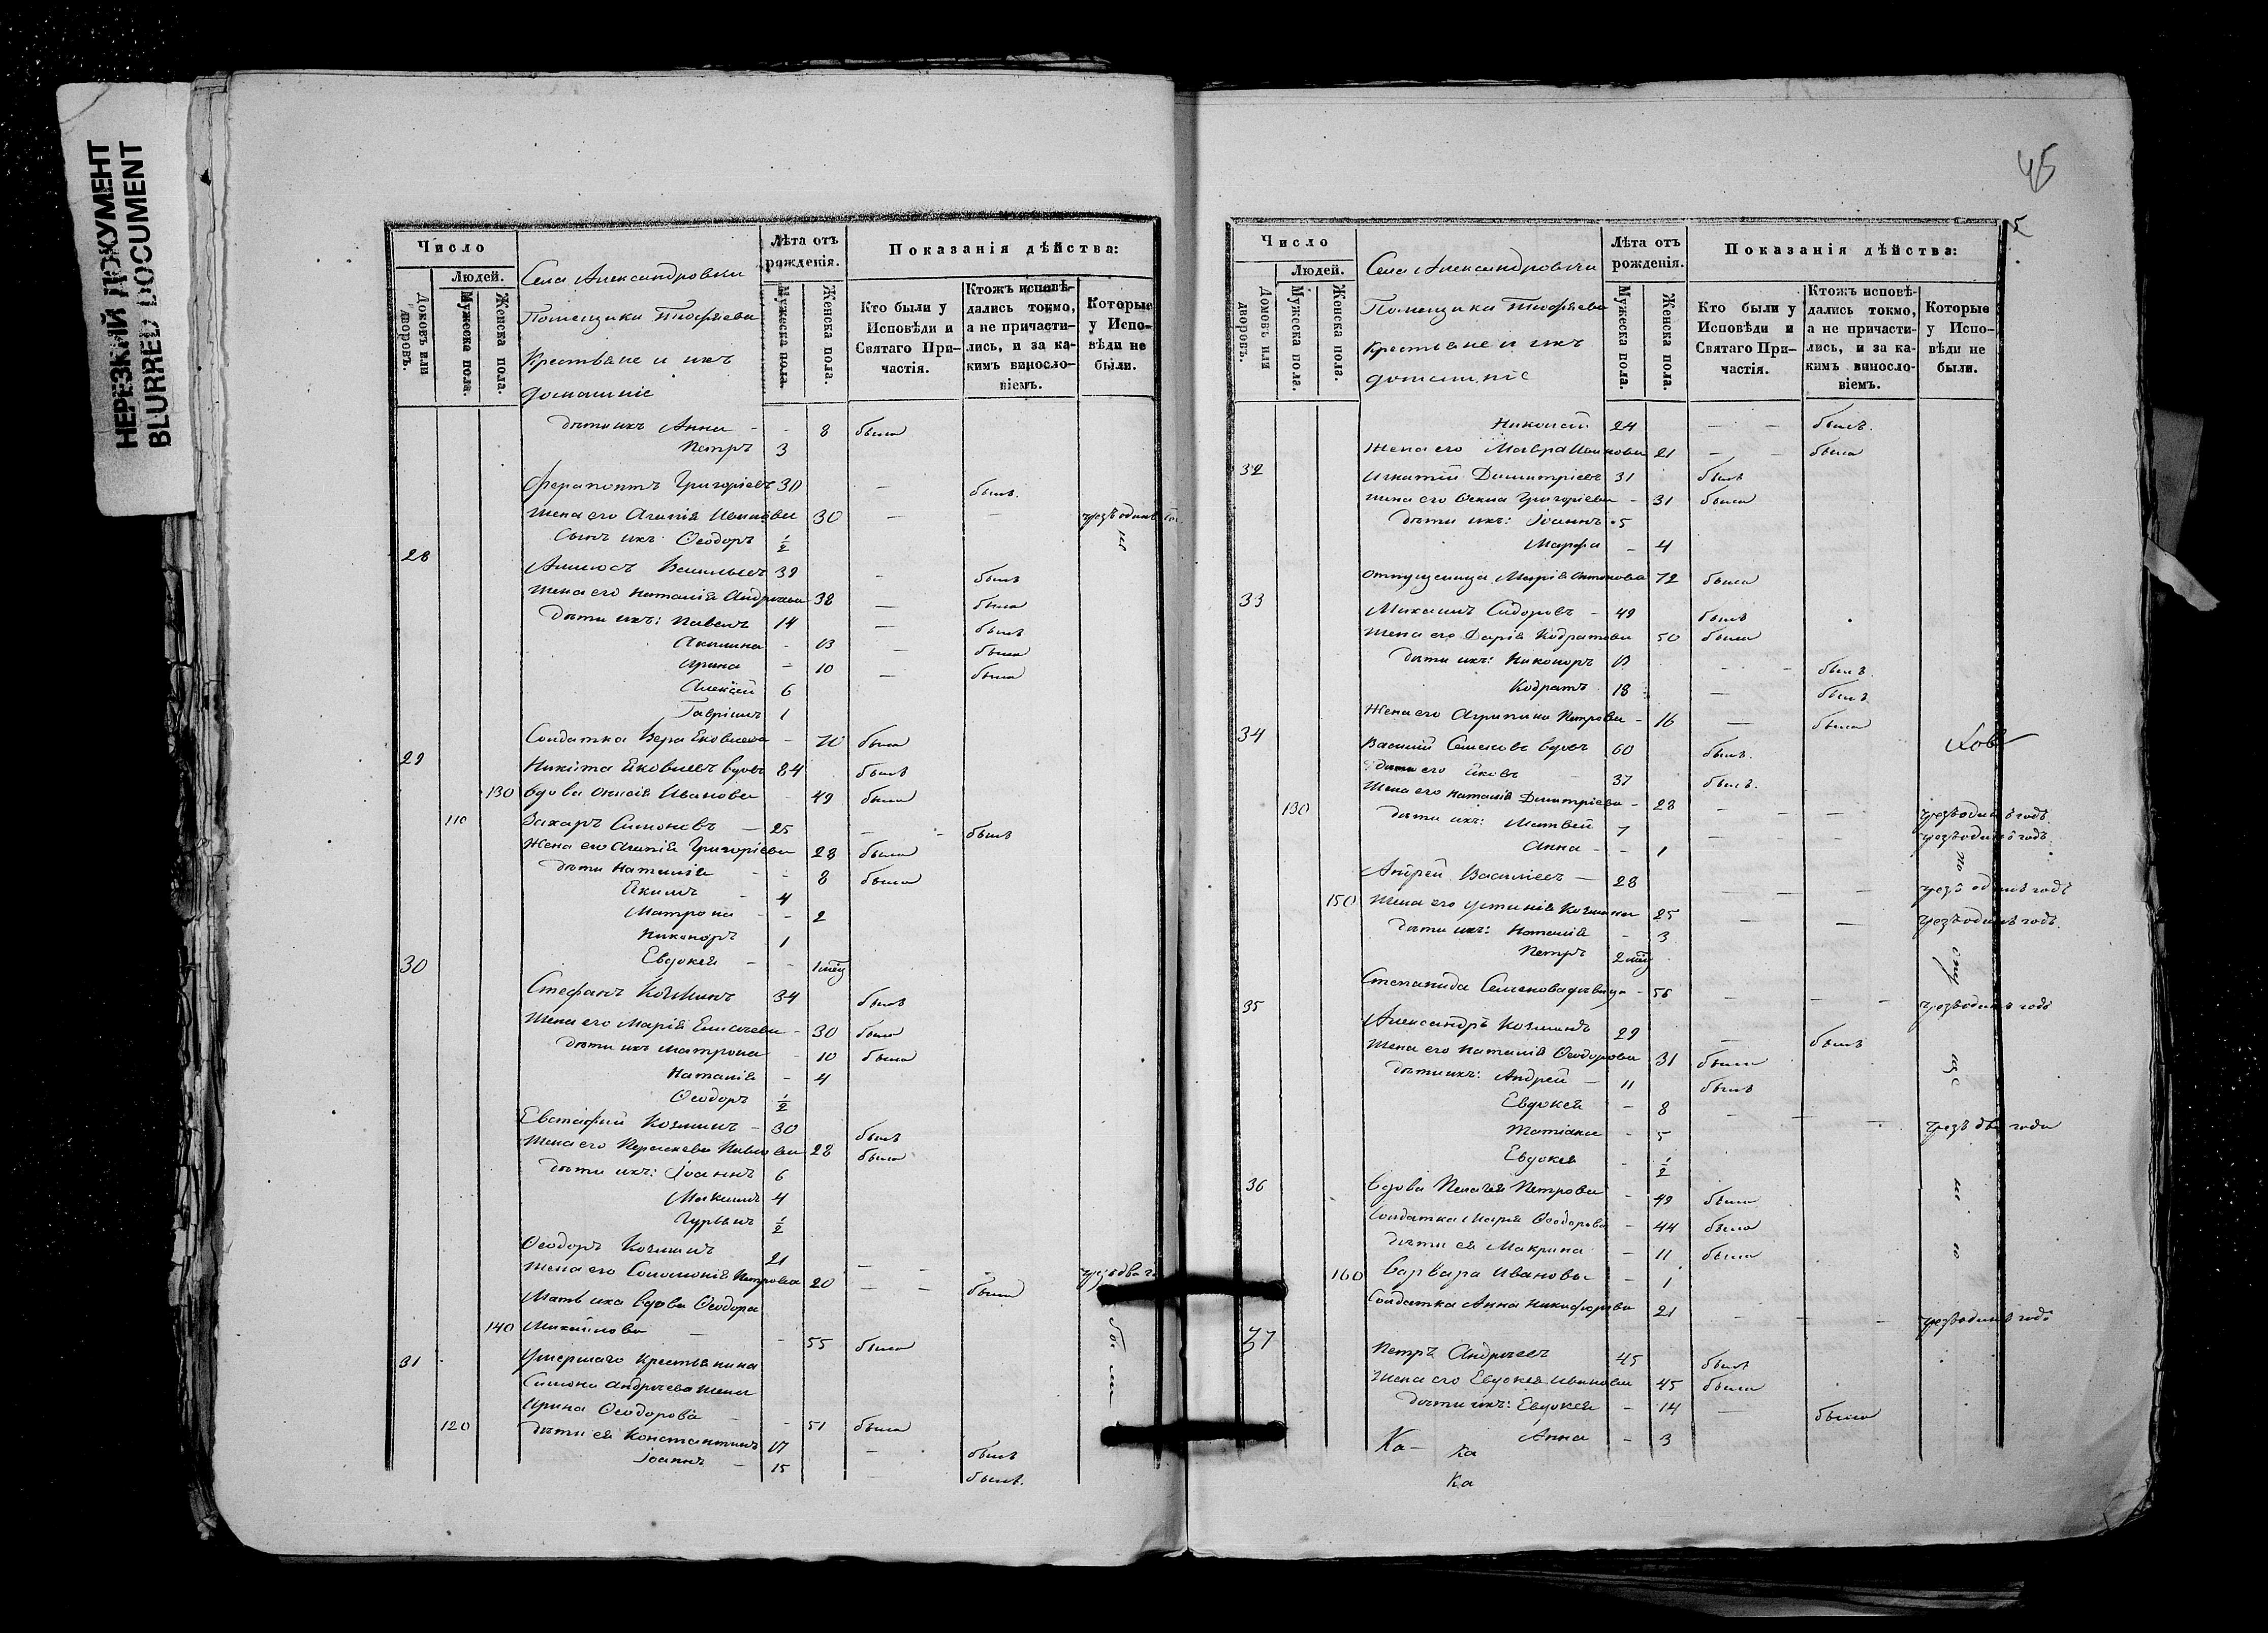 НЕРЕЗКИЙ ДОКУМЕНТ
BLURRED DOCUMENT
Число
Людей.
Домовъ или дворовъ.
Мужеска пола.
Женска пола.
Села Александровки
Помещика
Крестьяне и ихъ
домашніе
Лѣта отъ рожденія.
Мужеска пола.
Женска пола.
Показанія дѣйства:
Кто были у Исповѣди и Святаго Причастія.
Ктожъ исповѣдались токмо, а не причастились, и за какимъ винословіемъ.
Которые у Исповѣди не были.
дѣти ихъ Анна - - 8 была
Петръ 3
Ферапонтъ Григоріевъ 30 — былъ.
Жена его Агапія Иванова 30 — — чрезъ одинъ
Сынъ ихъ Ѳеодоръ ½
28
Васильевъ 39 - былъ
Жена его Наталія Андреева 38 — была
дѣти ихъ: Павелъ 14 — былъ
Акилина - 13 - была
Ирина - 10 — была
Алексѣй 6
Гавріилъ 1
Солдатка Вера Яковлева - 70 была
29 Никита Яковлевъ вдовъ 84 былъ
130 вдова Иванова - 49 была
110 Захаръ Симоновъ — 25 - - былъ
Жена его Агапія Григоріева 28 была
дѣти Наталія - - 8 была
Якимъ - 4
Матрона - - 2
Никоноръ 1
Евдокея - - 1 мѣц
30
Стефанъ Козминъ 34 былъ
Жена его Марія Елисеева - 30 была
дѣти ихъ Матрона - 10 была
Наталія - 4
Ѳеодоръ ½
Евстафий Козминъ - 30 былъ
Жена его Параскева Павлова 28 была
дѣти ихъ: Іоаннъ 6
Максимъ 4
Гурьянъ ½
Ѳеодоръ Козминъ 21 — - - чрезъ два
Жена его Соломонія Петрова 20 — - была
Мать ихъ вдова Ѳеодора
140 Михайлова — - 55 была
31 Умершаго крестьянина
Симона Андреева жена
Ирина Ѳеодорова - - 51 была
120 дѣти ея Константинъ 17 - былъ
Іоаннъ - 15 былъ.
45
Число
Людей.
Домовъ или дворовъ.
Мужеска пола.
Женска пола.
Села Александровки
Помещика
крестьяне и ихъ
домашніе
Лѣта отъ рожденія.
Мужеска пола.
Женска пола.
Показанія дѣйства:
Кто были у Исповѣди и Святаго Причастія.
Ктожъ исповѣдались токмо, а не причастились, и за какимъ винословіемъ.
Которые у Исповѣди не были.
Николай 24 — - былъ.
Жена его Мавра Иванова 21 - - была
32
Игнатій Димитріевъ 31 былъ
жена его Григоріева - 31 была
дѣти ихъ: Іоаннъ 5
Марфа - 4
Отпущеница Марія Антонова 72 была
33
Михаилъ Сидоровъ - 49 былъ
Жена его Дарія Кодратова 50 была
дѣти ихъ: Никоноръ - - былъ.
Кодратъ 18 — былъ
Жена его Агрипина Петрова - 16 — была
34
Василій Семеновъ вдовъ 60 былъ.
его Яковъ - 37 былъ.
Жена его Наталія Димитріева - 28 - - — чрезъ одинъ годъ
130 дѣти ихъ: Матвей 7 - - чрезъ одинъ годъ
Анна - - 1
Андрей Василіевъ — 28 - - - чрезъ одинъ годъ
150 Жена его Устинія Козмина 25 - — чрезъ одинъ годъ.
дѣти ихъ: Наталія - 3
Петръ 2 мѣц
Степанида Семенова - 56 - - - чрезъ одинъ годъ
35
Александръ Козминъ 29 - былъ
Жена его Наталія Ѳеодорова 31 была
дѣти ихъ: Андрей — 11 былъ
Евдокея - 8 - - - чрезъ два года
Татіана - 5
Евдокея - ½
36 вдова Пелагея Петрова - 49 была
Солдатка Марія Ѳеодорова - 44 была
дѣти ея Макрина - 11 была
160 Варвара Иванова - 1
Солдатка Анна Никифорова 21 - - - чрезъ одинъ годъ
37 Петръ Андреевъ 45 былъ
Жена его Евдокея Иванова 45 была
дѣти ихъ: Евдокея - 14 — была
Анна - 3
Ка- Ка
Ка